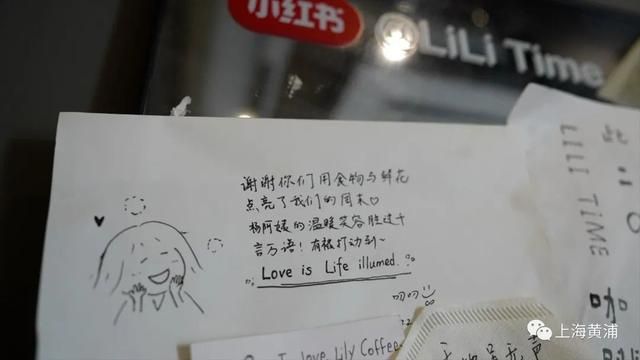 小红书
@LiLi Time
谢谢你们用食物与鲜花
点亮了我们的周末♡
杨阿姨的温暖笑容胜过千
言万语！有被打动到~
Love is Life illumed.
叨叨
I love Lily Coffee
LILI TIME
此
咖
上海黄浦